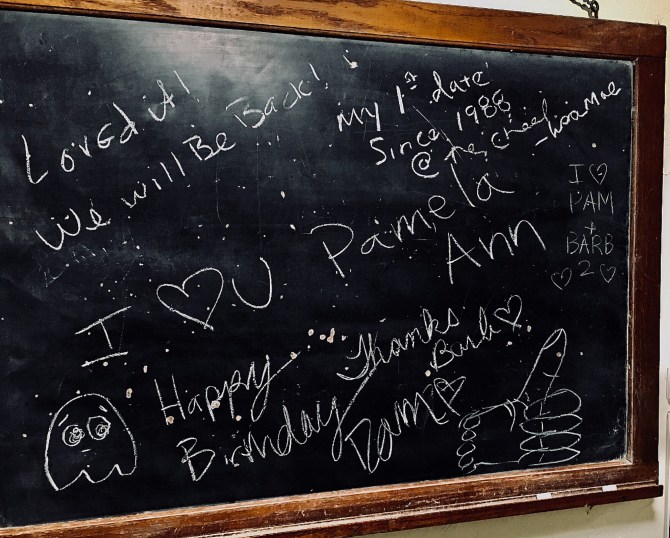 Loved it!
We will Be Back!
My 1st date
Since 1988
@ the Creek
-LisaMae
I ♡
PAM
+
BARB
2
♡ ♡
Pamela
Ann
I ♡ U
Thanks
Barb ♡
Happy
Birthday
Pam ♡